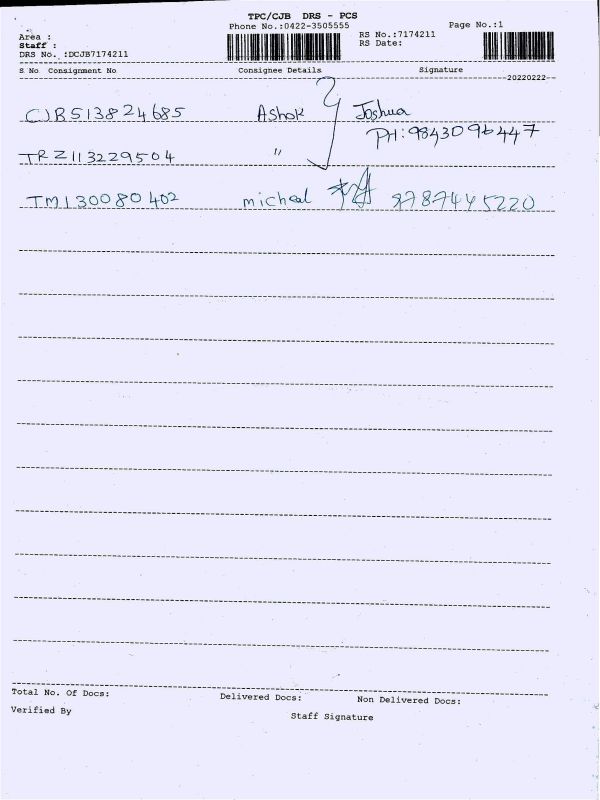 TPC/CJB DRS - PCS
Phone No.:0422-3505555
Page No.:1
Area :
Staff :
DRS No. :DCJB7174211
RS No.:7174211
RS Date:
S No Consignment No Consignee Details Signature
20220222
CJB513824685 Ashok Joshua
PH:9843096447
TRZ113229504 "
TM130080402 micheal 9787445220
Total No. Of Docs: Delivered Docs: Non Delivered Docs:
Verified By Staff Signature